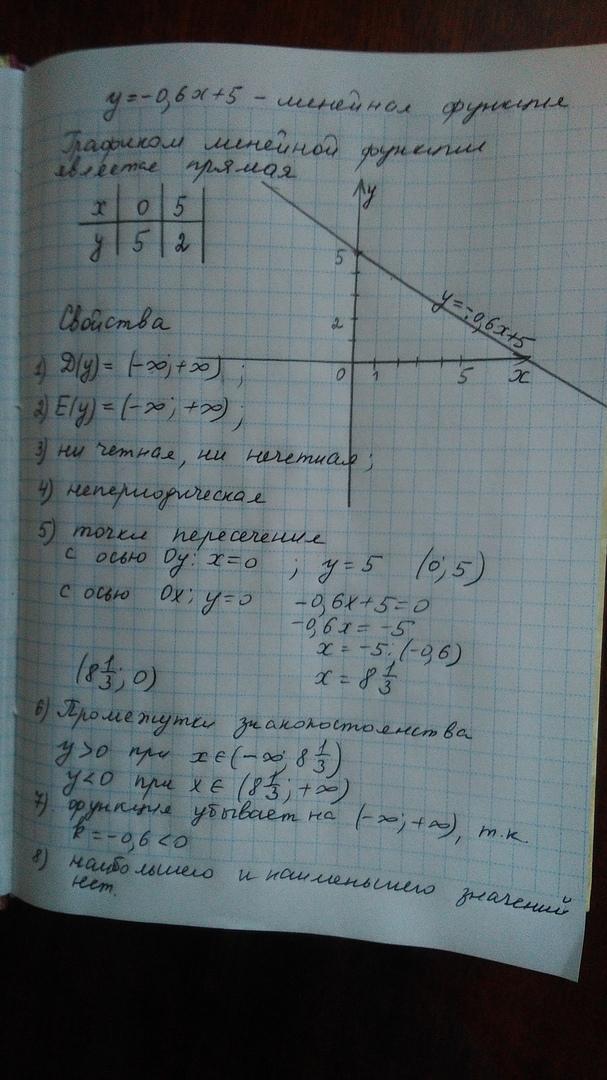 y=-0,6x+5 - линейная функция
Графиком линейной функции
является прямая
x 0 5
y 5 2
y
5
2
0 1 5 x
y=-0,6x+5
Свойства
1) D(y)= (-∞;+∞) ;
2) E(y)=(-∞; +∞) ;
3) ни четная, ни нечетная ;
4) непериодическая
5) точки пересечения
с осью Oy: x=0 ; y=5 (0; 5)
с осью Ox: y=0 -0,6x+5=0
-0,6x = -5
x = -5:(-0,6)
(8 1/3; 0) x = 8 1/3
6) Промежутки знакопостоянства
y>0 при x∈(-∞; 8 1/3)
y<0 при x∈ (8 1/3; +∞)
7) функция убывает на (-∞;+∞), т.к.
k=-0,6<0
8) наибольшего и наименьшего значений
нет.